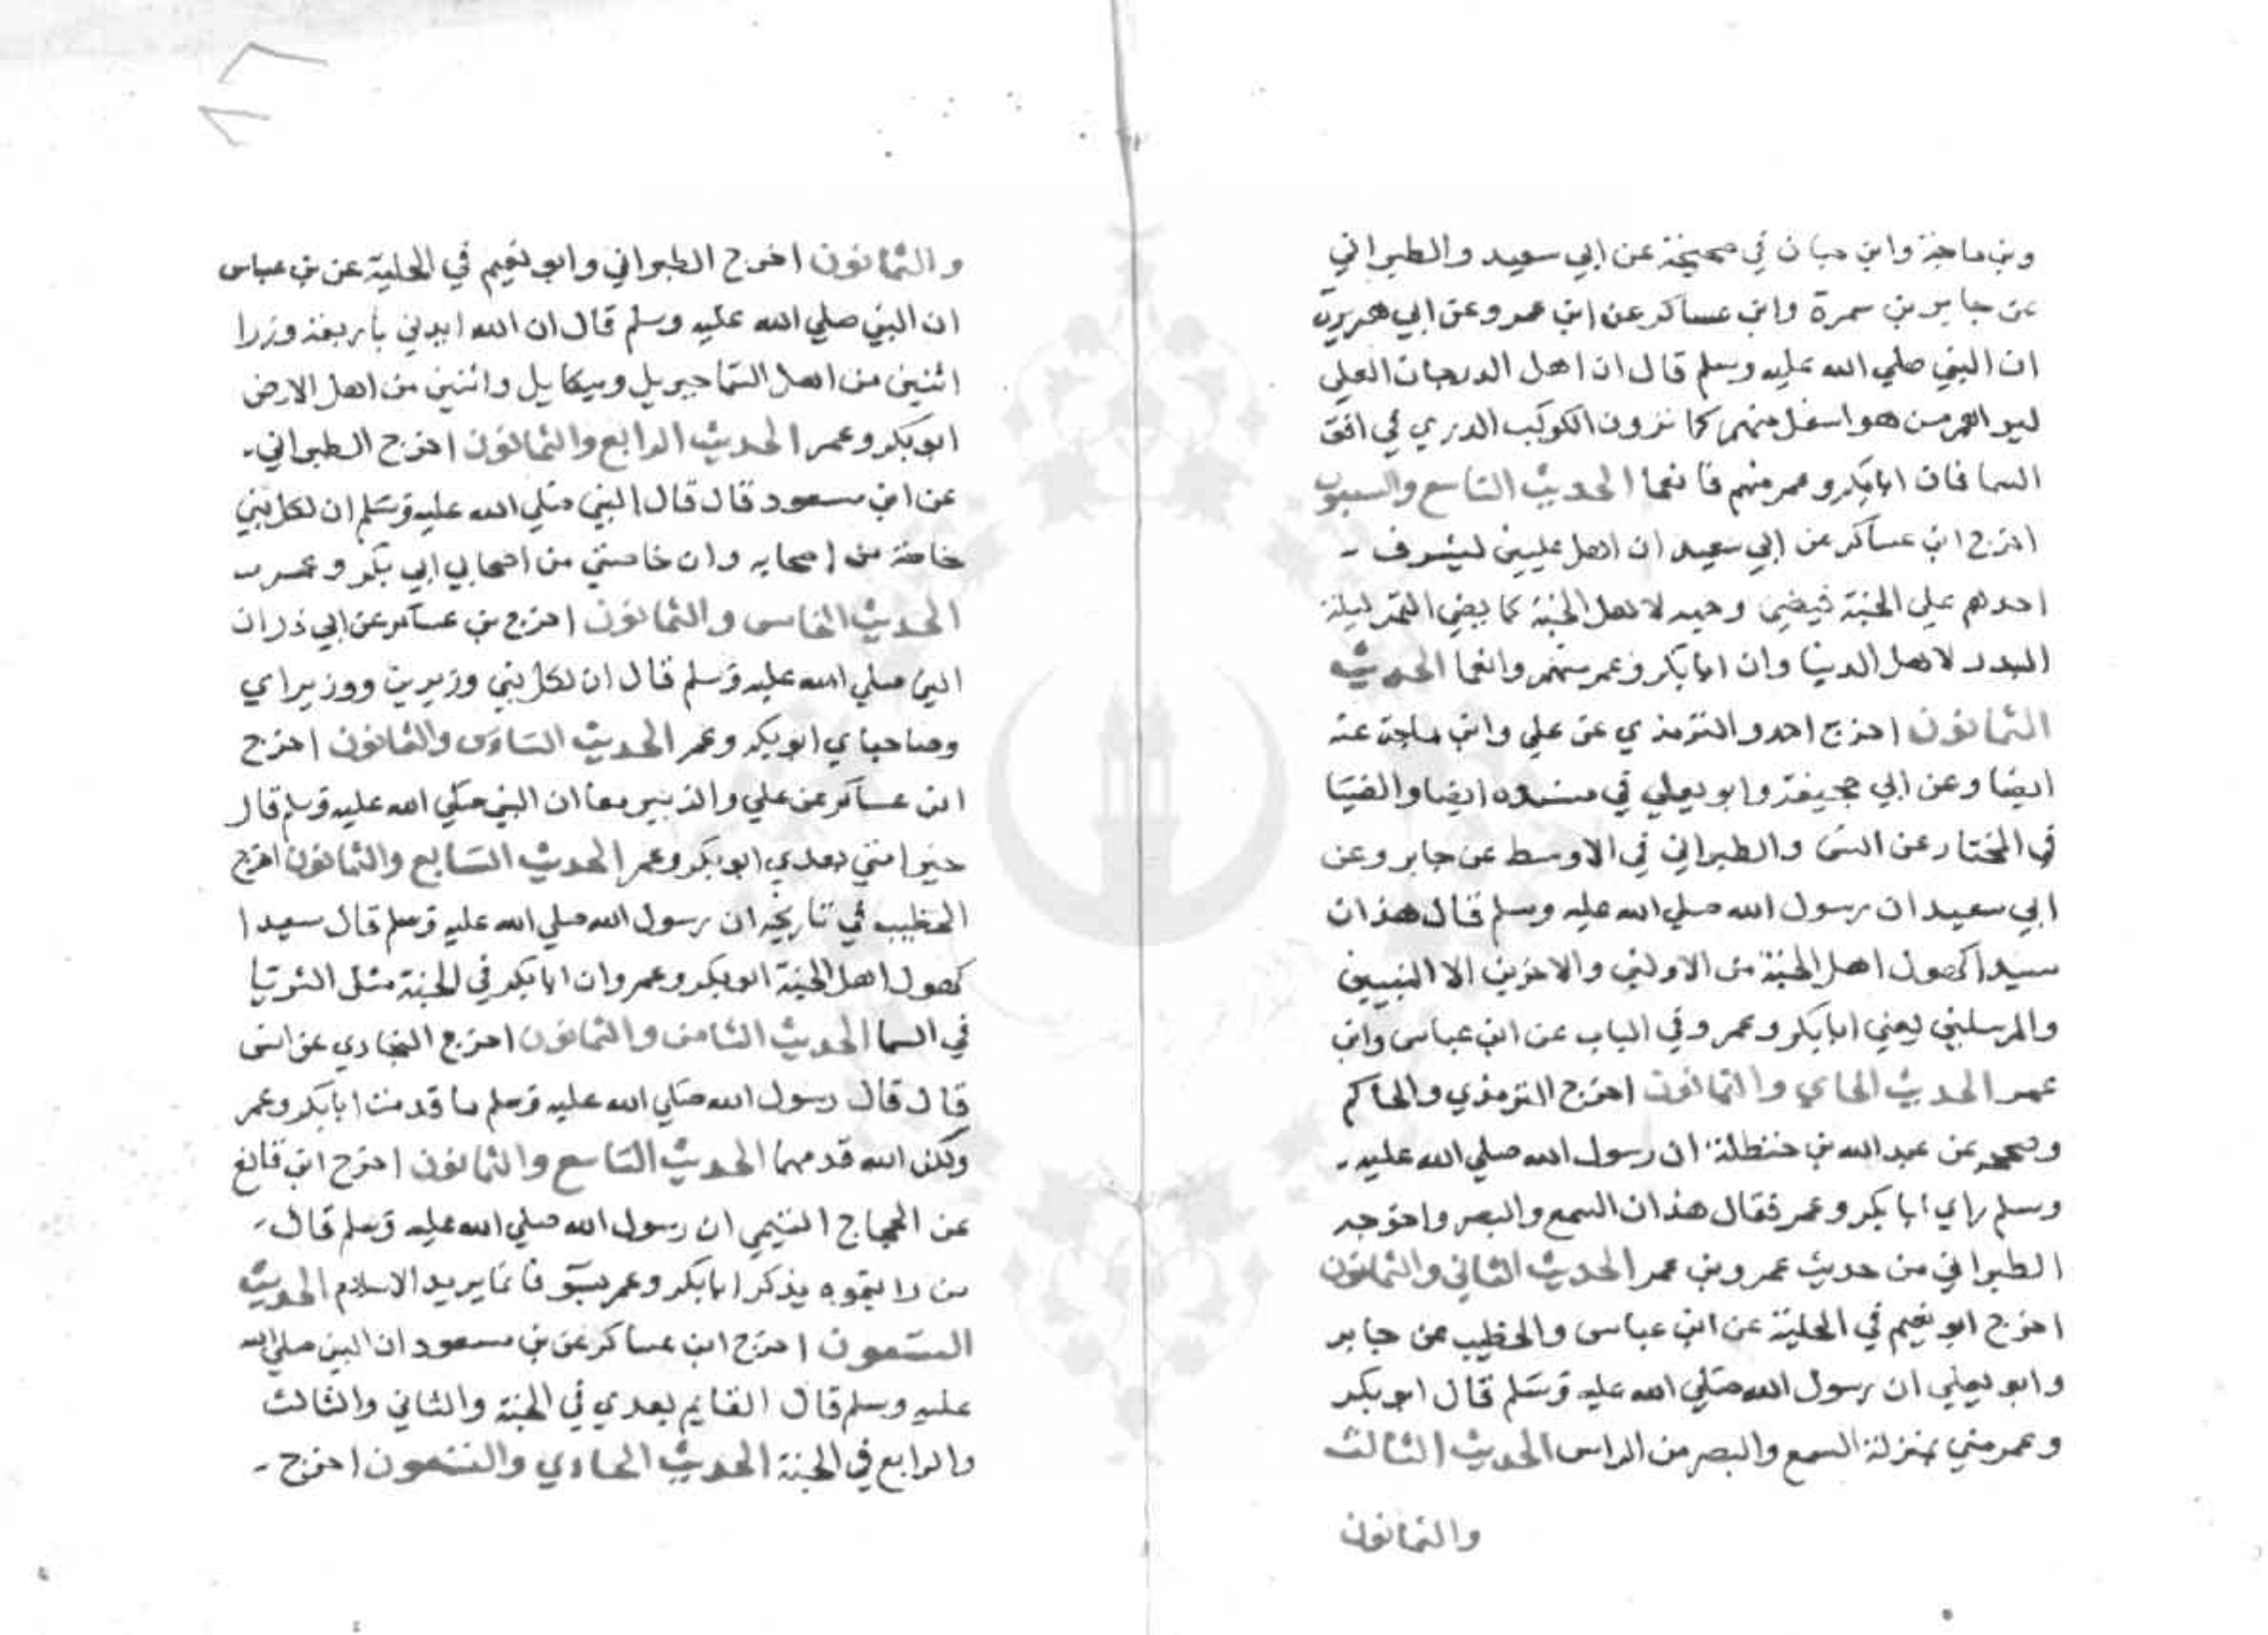 وبن ماجة وابن حبان في صحيحة عن ابي سعيد والطبراني
عن جابر بن سمرة وابن عساكر عن ابن عمر وعن ابي هريرة
ان النبي صلي الله عليه وسلم قال ان اهل الدرجات العلي
ليراهم من هو اسفل منهم كما ترون الكوكب الدري في افق
السما فان ابابكر وعمر منهم فانعما الحديث التاسع والسبعون
اخرج ابن عساكر عن ابي سعيد ان اهل عليين ليشرف
احدهم علي الجنة فيضي وجهه لاهل الجنة كما يضي القمر ليلة
البدر لاهل الدينا وان ابابكر وعمر منهم وانعما الحديث
الثمانون اخرج احمد والترمذي عن علي وابن ماجة عنه
ايضا وعن ابي جحيفة وابو يعلي في مسنده ايضا والضيا
في المختار عن انس والطبراني في الاوسط عن جابر وعن
ابي سعيد ان رسول الله صلي الله عليه وسلم قال هذان
سيدا كهول اهل الجنة من الاولين والاخرين الا النبيين
والمرسلين يعني ابابكر وعمر وفي الباب عن ابن عباس وابن
عمر الحديث الحاي والثمانون اخرج الترمذي والحاكم
وصححه عن عبد الله بن حنطلة ان رسول الله صلي الله عليه
وسلم راي ابا بكر وعمر فقال هذان السمع والبصر واخرجه
الطبراني من حديث عمر وبن عمر الحديث الثاني والثمانون
اخرج ابو نعيم في الحلية عن ابن عباس والخطيب عن جابر
وابو يعلي ان رسول الله صلي الله عليه وسلم قال ابو بكر
وعمر مني بمنزلة السمع والبصر من الراس الحديث الثالث
والثمانون
والثمانون اخرج الطبراني وابو نعيم في الحلية عن بن عباس
ان النبي صلي الله عليه وسلم قال ان الله ايدني باربعة وزرا
اثنين من اهل السما جبريل وميكايل واثنين من اهل الارض
ابوبكر وعمر الحديث الرابع والثمانون اخرج الطبراني
عن ابن مسعود قال قال النبي صلي الله عليه وسلم ان لكل نبي
خاصة من اصحابه وان خاصتي من اصحابي ابي بكر وعمر
الحديث الخامس والثمانون اخرج بن عساكر عن ابي ذر ان
النبي صلي الله عليه وسلم قال ان لكل نبي وزيرين ووزيراي
وصاحباي ابوبكر وعمر الحديث السادس والثمانون اخرج
ابن عساكر عن علي والزبير معا ان النبي صلي الله عليه وسلم قال
خير امتي بعدي ابوبكر وعمر الحديث السابع والثمانون اخرج
الخطيب في تاريخه ان رسول الله صلي الله عليه وسلم قال سيدا
كهول اهل الجنة ابوبكر وعمر وان ابابكر في الجنة مثل الثريا
في السما الحديث الثامن والثمانون اخرج البخاري عن انس
قال قال رسول الله صلي الله عليه وسلم ما قدمت ابابكر وعمر
ولكن الله قدمهما الحديث التاسع والثمانون اخرج ابن قانع
عن الحجاج التيمي ان رسول الله صلي الله عليه وسلم قال
من رايتموه يذكر ابابكر وعمر بسو فانما يريد الاسلام الحديث
التسعون اخرج ابن عساكر عن بن مسعود ان النبي صلي الله
عليه وسلم قال القايم بعدي في الجنة والثاني والثالث
والرابع في الجنة الحديث الحادي والتسعون اخرج